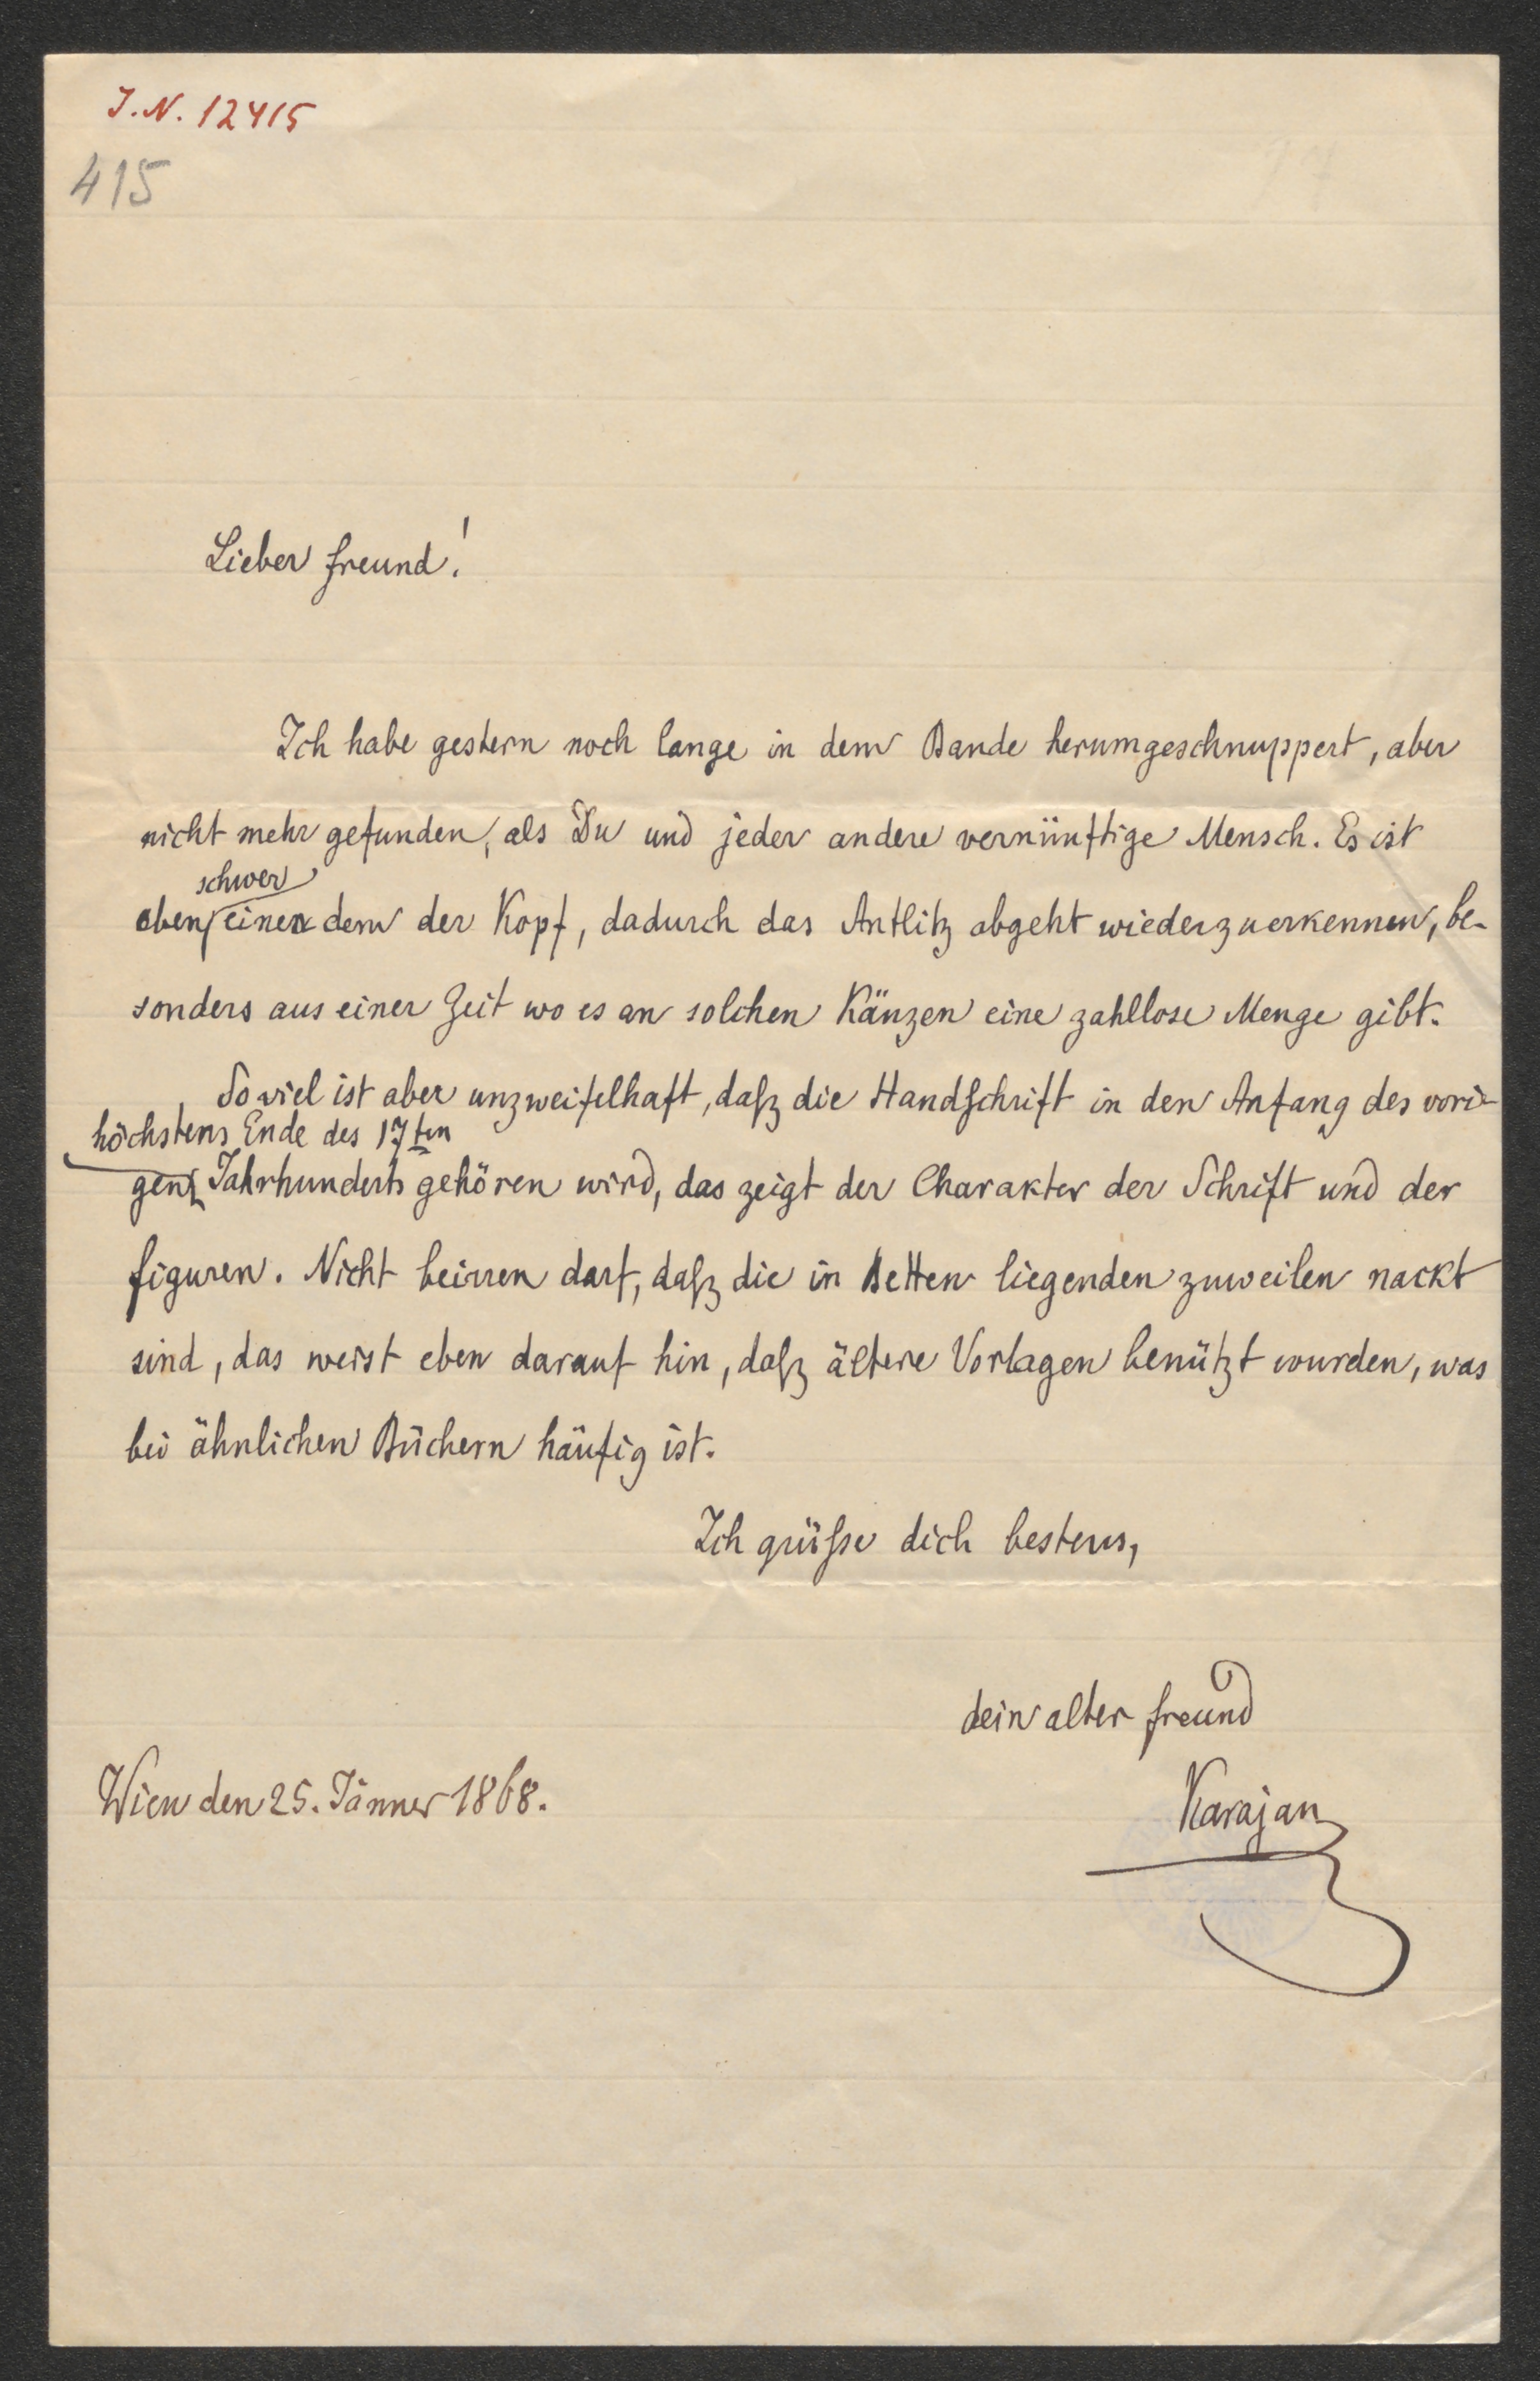 J.N. 12415
415
Lieber freund!
Ich habe gestern noch lange in dem Bande herumgeschnuppert, aber
nicht mehr gefunden, als Du und jeder andere vernünftige Mensch. Es ist
schwer
eben einen dem der Kopf, dadurch das Antlitz abgeht wiederzuerkennen, be-
sonders aus einer Zeit wo es an solchen Känzen eine zahllose Menge gibt.
So viel ist aber unzweifelhaft, daſz die Handſchrift in den Anfang des vori-
höchstens Ende des 17ten
gen Jahrhunderts gehören wird, das zeigt der Charakter der Schrift und der
figuren. Nicht beirren darf, daſz die in Betten liegenden zuweilen nackt
sind, das weist eben darauf hin, daſz ältere Vorlagen benützt wurden, was
bei ähnlichen Büchern häufig ist.
Ich grüſse dich bestens,
dein alter freund
Wien den 25. Jänner 1868.
Karajan